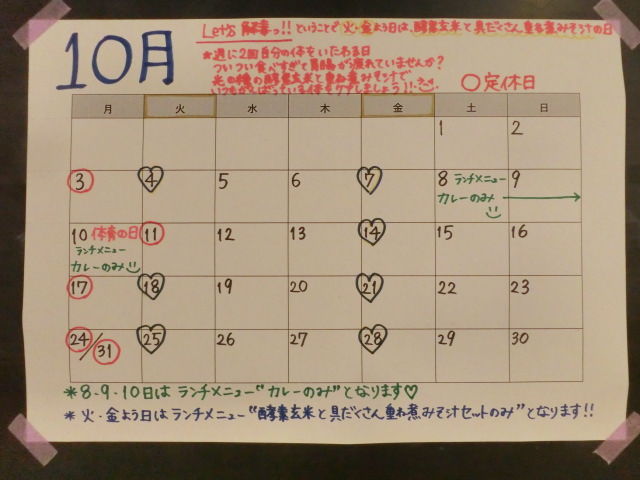 10月
Let's 解毒っ!! ということで 火・金よう日は、酵素玄米と具だくさん重ね煮みそ汁の日
*週に2回自分の体をいたわる日
ついつい食べすぎて胃腸が疲れていませんか?
光の種の酵素玄米と重ね煮みそ汁で
いつもがんばっている体をケアしましょう!!
○定休日
月 火 水 木 金 土 日
1 2
3 4 5 6 7 8 ランチメニュー カレーのみ 9
10 体育の日 ランチメニュー カレーのみ 11 12 13 14 15 16
17 18 19 20 21 22 23
24/31 25 26 27 28 29 30
*8・9・10日は ランチメニュー"カレーのみ"となります♡
*火・金よう日は ランチメニュー"酵素玄米と具だくさん重ね煮みそ汁セットのみ"となります!!